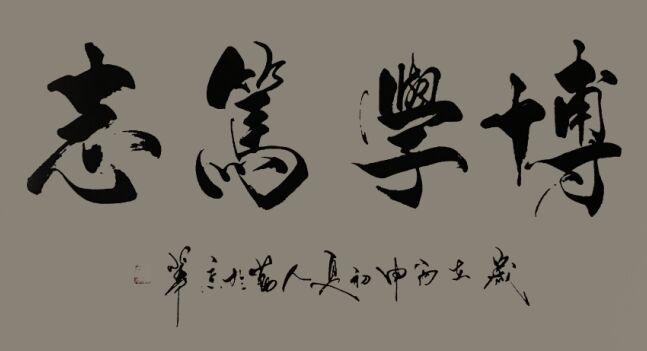 博學篤志
歲在丙申初夏人於京華